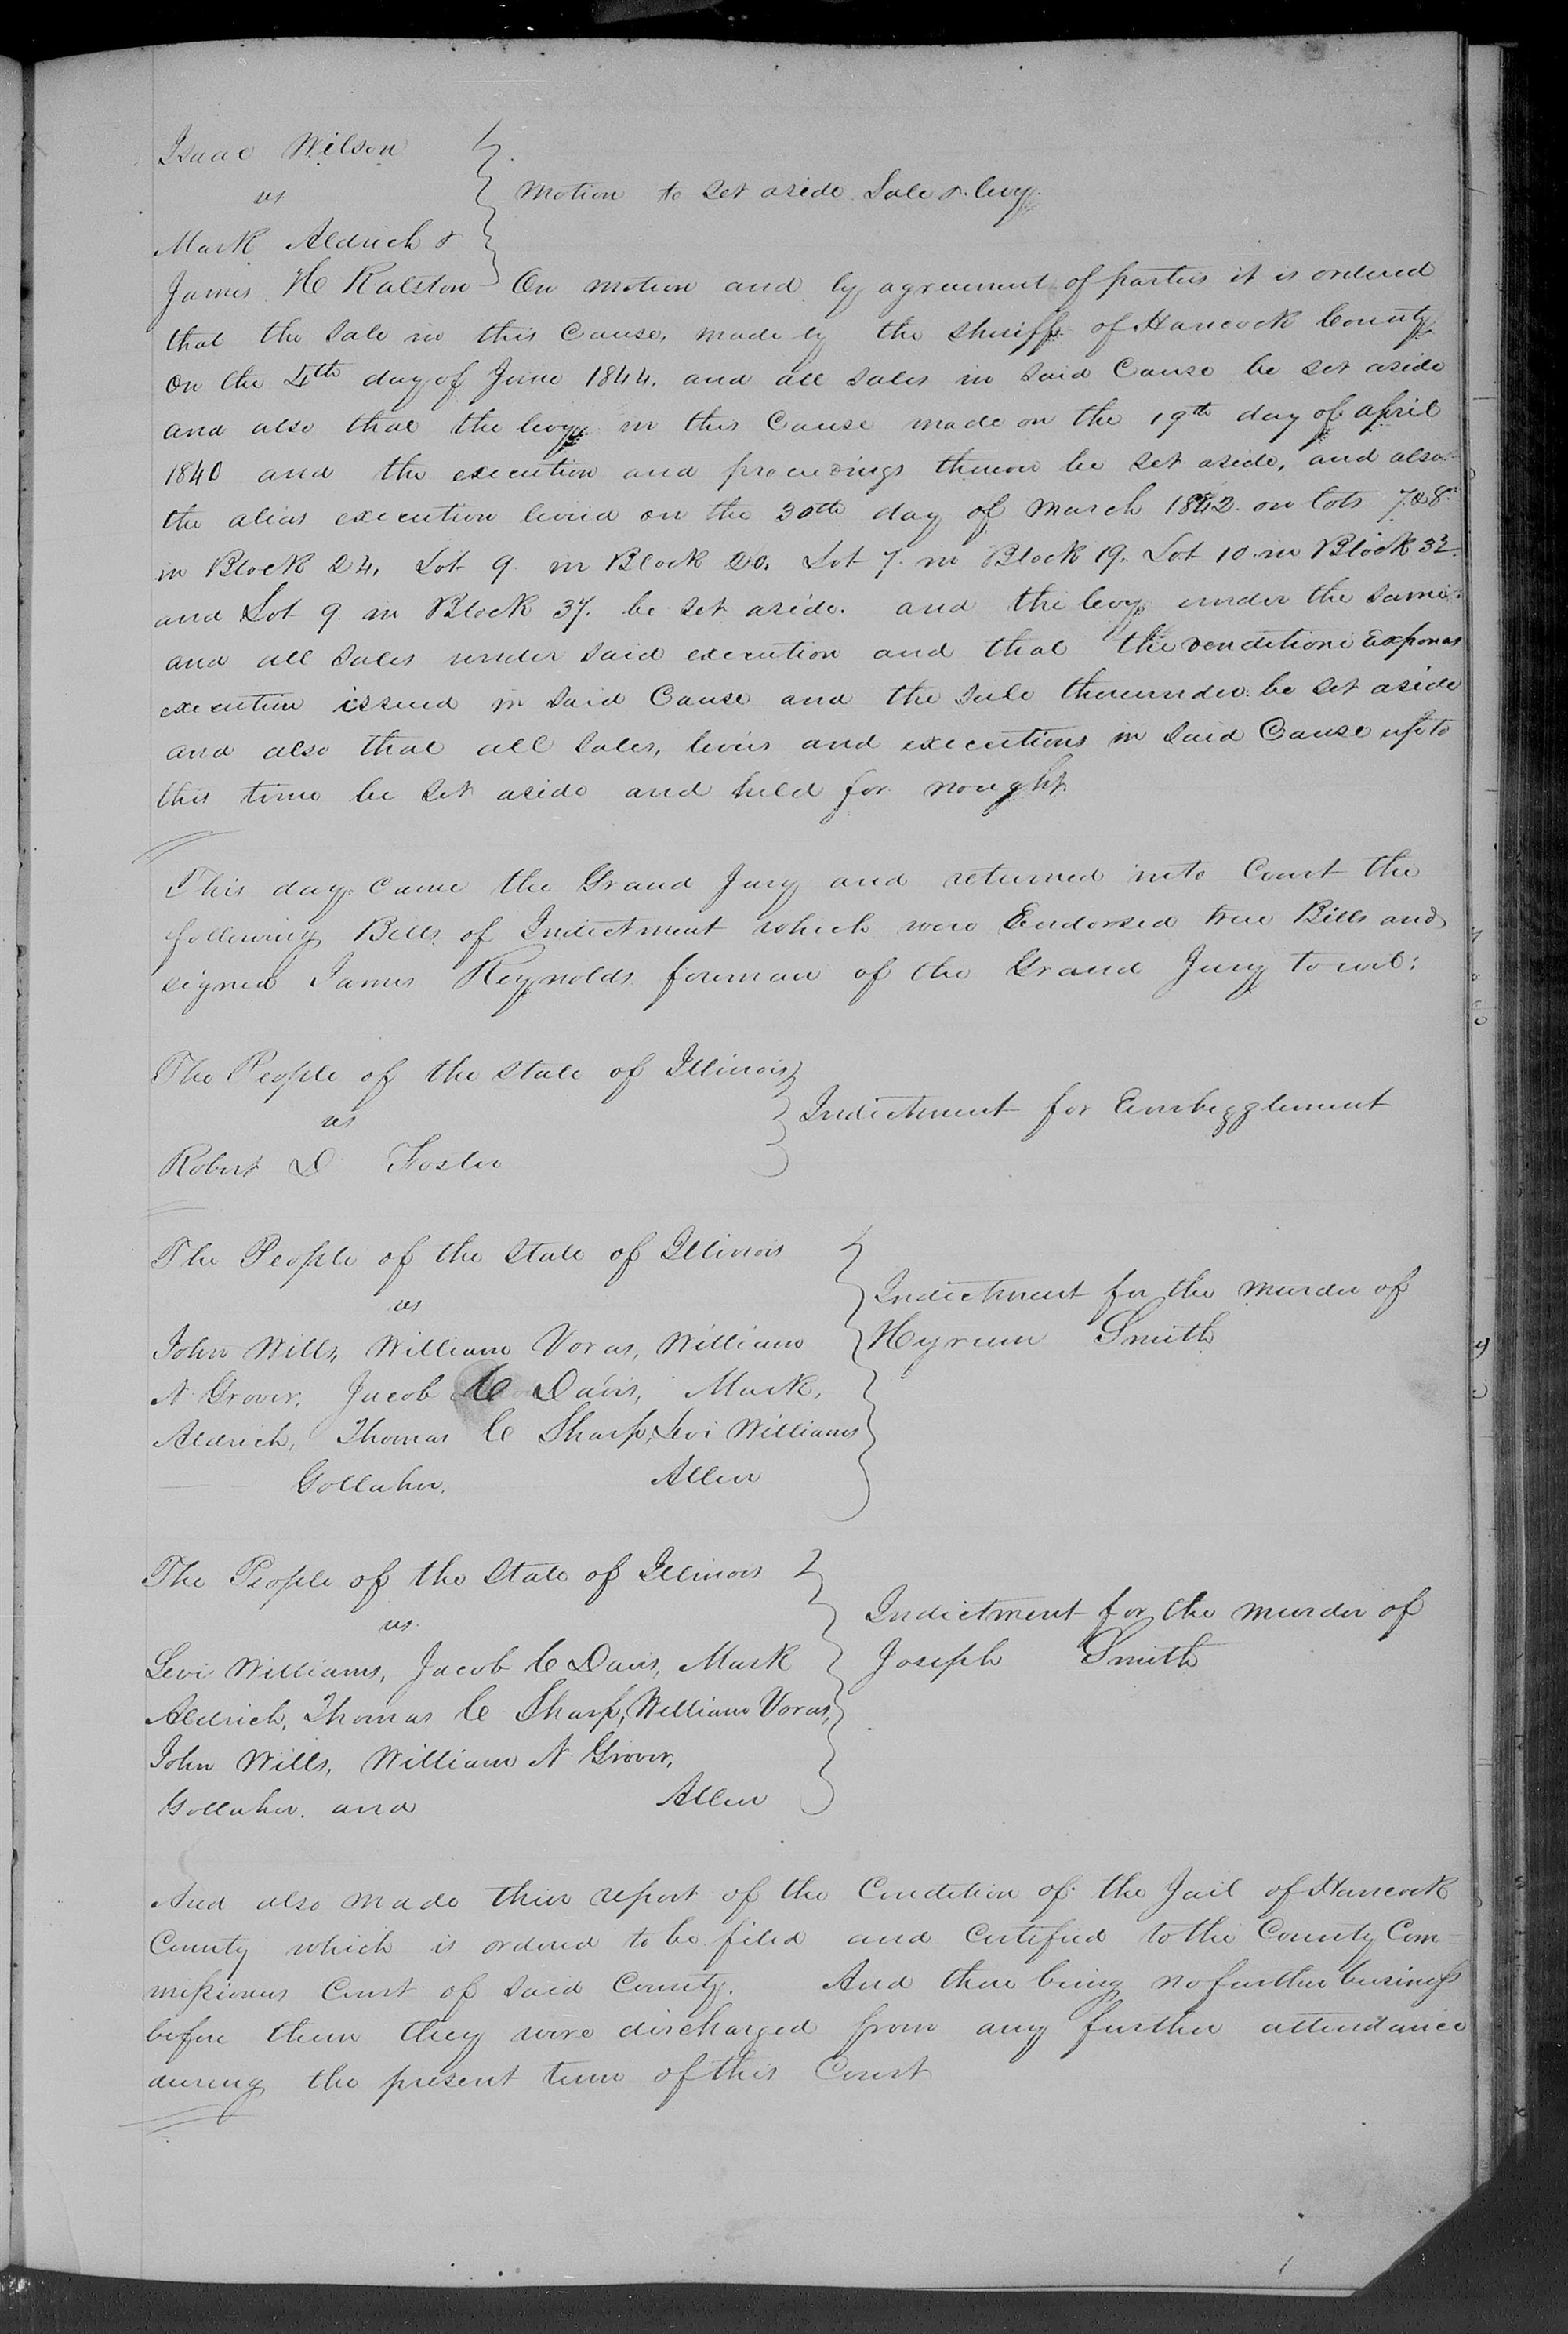 Isaac Wilson
vs
Motion to set aside Sale & levy.
Mark Aldrich &
James H Ralston On motion and by agreement of parties it is ordered
that the sale in this Cause, made by the sheriff of Hancock County
on the 4th day of June 1844. and all sales in said Cause be set aside
and also that the levy in this Cause made on the 19th day of april
1840 and the execution and proceedings thereon be set aside, and also
the alias execution levied on the 30th day of March 1842. on lots 7 & 8
in Block 24, Lot 9 in Block 20. Lot 7. in Block 19. Lot 10 in Block 32
and Lot 9 in Block 37. be set aside. and the levy under the same
and all sales under said execution and that the venditioni Exponas
execution issued in said Cause and the sale thereunder be set aside
and also that all sales, levies and executions in said Cause up to
this time be set aside and held for nought
This day came the Grand Jury and returned into Court the
following Bills of Indictment which were Endorsed true Bills and
signed James Reynolds foreman of the Grand Jury to wit:
The People of the State of Illinois
vs
Indictment for Embezzlement
Robert D Foster
The People of the State of Illinois
vs
Indictment for the murder of
Hyrum Smith
John Wills, William Voras, William
N Grover, Jacob C Davis, Mark,
Aldrich, Thomas C Sharp, Levi Williams
Gollaher, Allen
The People of the State of Illinois
vs.
Indictment for the murder of
Joseph Smith
Levi Williams, Jacob C Davis, Mark
Aldrich, Thomas C Sharp, William Voras,
John Wills, William N Grover,
Gollaher. and Allen
And also made their report of the Condition of the Jail of Hancock
County which is ordered to be filed and Certified to the County Com-
missioners Court of said County. And there being no further business
before them they were discharged from any further attendance
during the present term of this Court